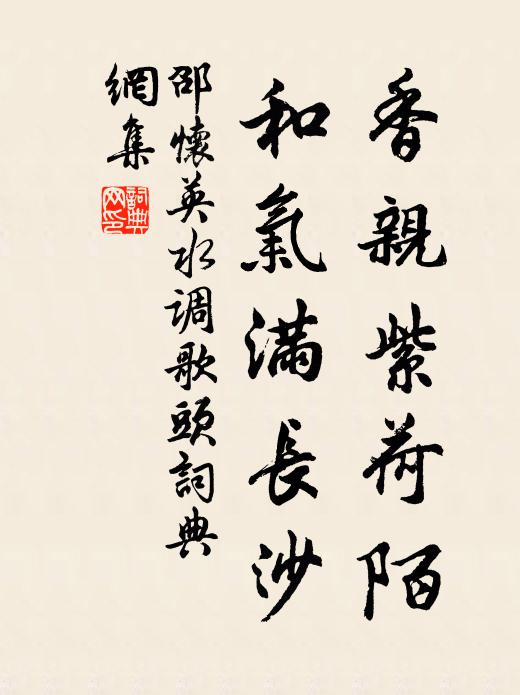 香親紫荷陌
和氣滿長沙
邵懷英水調歌頭詞典
網集
詞典
網印